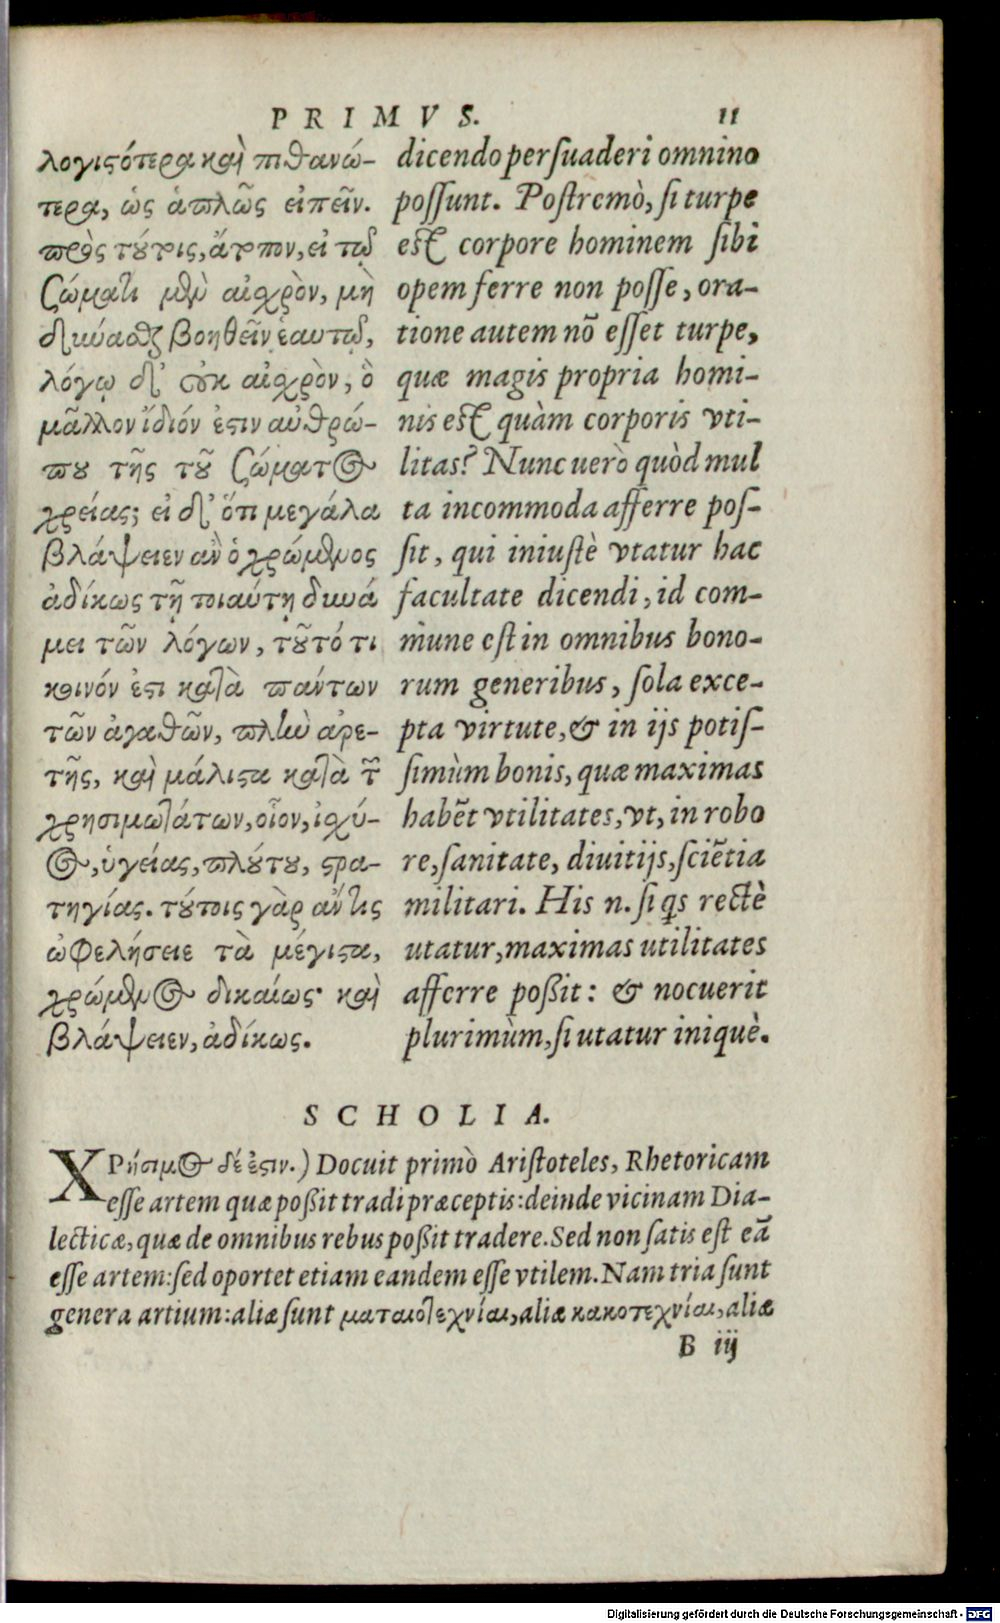 PRIMVS. 11
λογιϛότερα καὶ πιθανώ-
τερα, ὡς ἁπλῶς εἰπεῖν.
πρὸς τούτοις, ἄτοπον, εἰ τῷ
σώματι μὲν αἰσχρὸν, μὴ
δύνασθαι βοηθεῖν ἑαυτῷ,
λόγῳ δ' οὐκ αἰσχρὸν, ὃ
μᾶλλον ἴδιόν ἐϛιν ἀνθρώ-
που τῆς τοῦ σώματος
χρείας; εἰ δ' ὅτι μεγάλα
βλάψειεν ἂν ὁ χρώμενος
ἀδίκως τῇ τοιαύτῃ δυνά
μει τῶν λόγων, τοῦτό τι
κοινόν ἐϛι κατὰ πάντων
τῶν ἀγαθῶν, πλὴν ἀρε-
τῆς, καὶ μάλιϛα κατὰ τῶν
χρησιμωτάτων, οἷον, ἰσχύ-
ος, ὑγείας, πλούτου, ϛρα-
τηγίας. τούτοις γὰρ ἄν τις
ὠφελήσειε τὰ μέγιϛα,
χρώμενος δικαίως· καὶ
βλάψειεν, ἀδίκως.
dicendo persuaderi omnino
possunt. Postremò, si turpe
est corpore hominem sibi
opem ferre non posse, ora-
tione autem nõ esset turpe,
quæ magis propria homi-
nis est quàm corporis vti-
litas? Nunc uerò quòd mul
ta incommoda afferre pos-
sit, qui iniustè vtatur hac
facultate dicendi, id com-
mune est in omnibus bono-
rum generibus, sola exce-
pta virtute, & in ijs potis-
simùm bonis, quæ maximas
habẽt vtilitates, vt, in robo
re, sanitate, diuitijs, sciẽtia
militari. His n. si qs rectè
utatur, maximas utilitates
afferre poßit: & nocuerit
plurimùm, si utatur iniquè.
SCHOLIA.
XΡήσιμος δέ ἐϛιν.) Docuit primò Aristoteles, Rhetoricam
esse artem quæ poßit tradi præceptis: deinde vicinam Dia-
lecticæ, quæ de omnibus rebus poßit tradere. Sed non satis est eã
esse artem: sed oportet etiam eandem esse vtilem. Nam tria sunt
genera artium: aliæ sunt ματαιοτεχνίαι, aliæ κακοτεχνίαι, aliæ
B iij
Digitalisierung gefördert durch die Deutsche Forschungsgemeinschaft - DFG